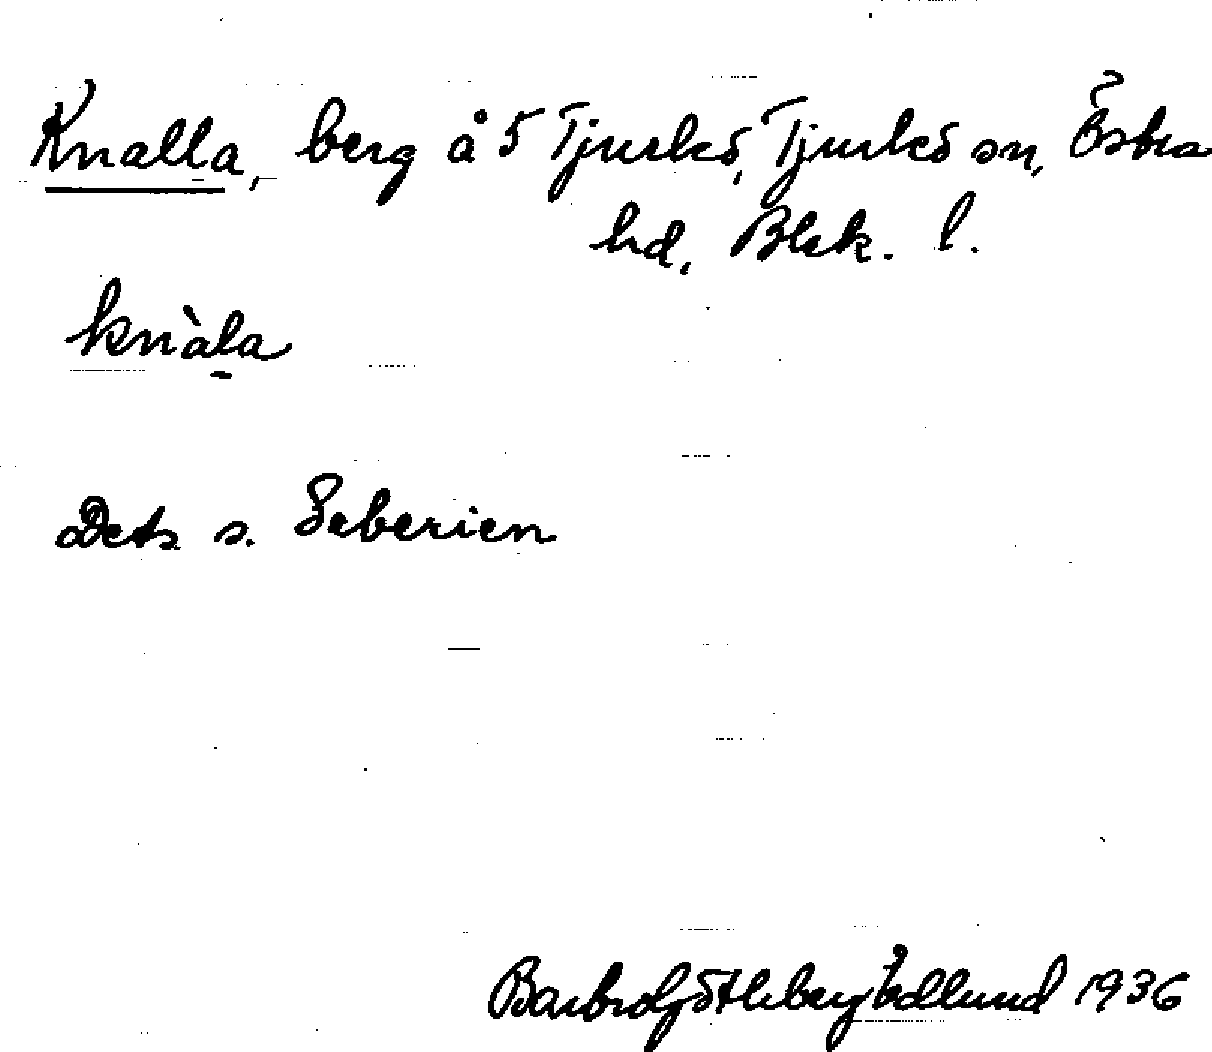 Knalla, berg å 5 Tjurkö, Tjurkö sn, Östra
hd, Blek. l.
knàla
Dets s. Seberien
Barbro Götleberg Edlund 1936